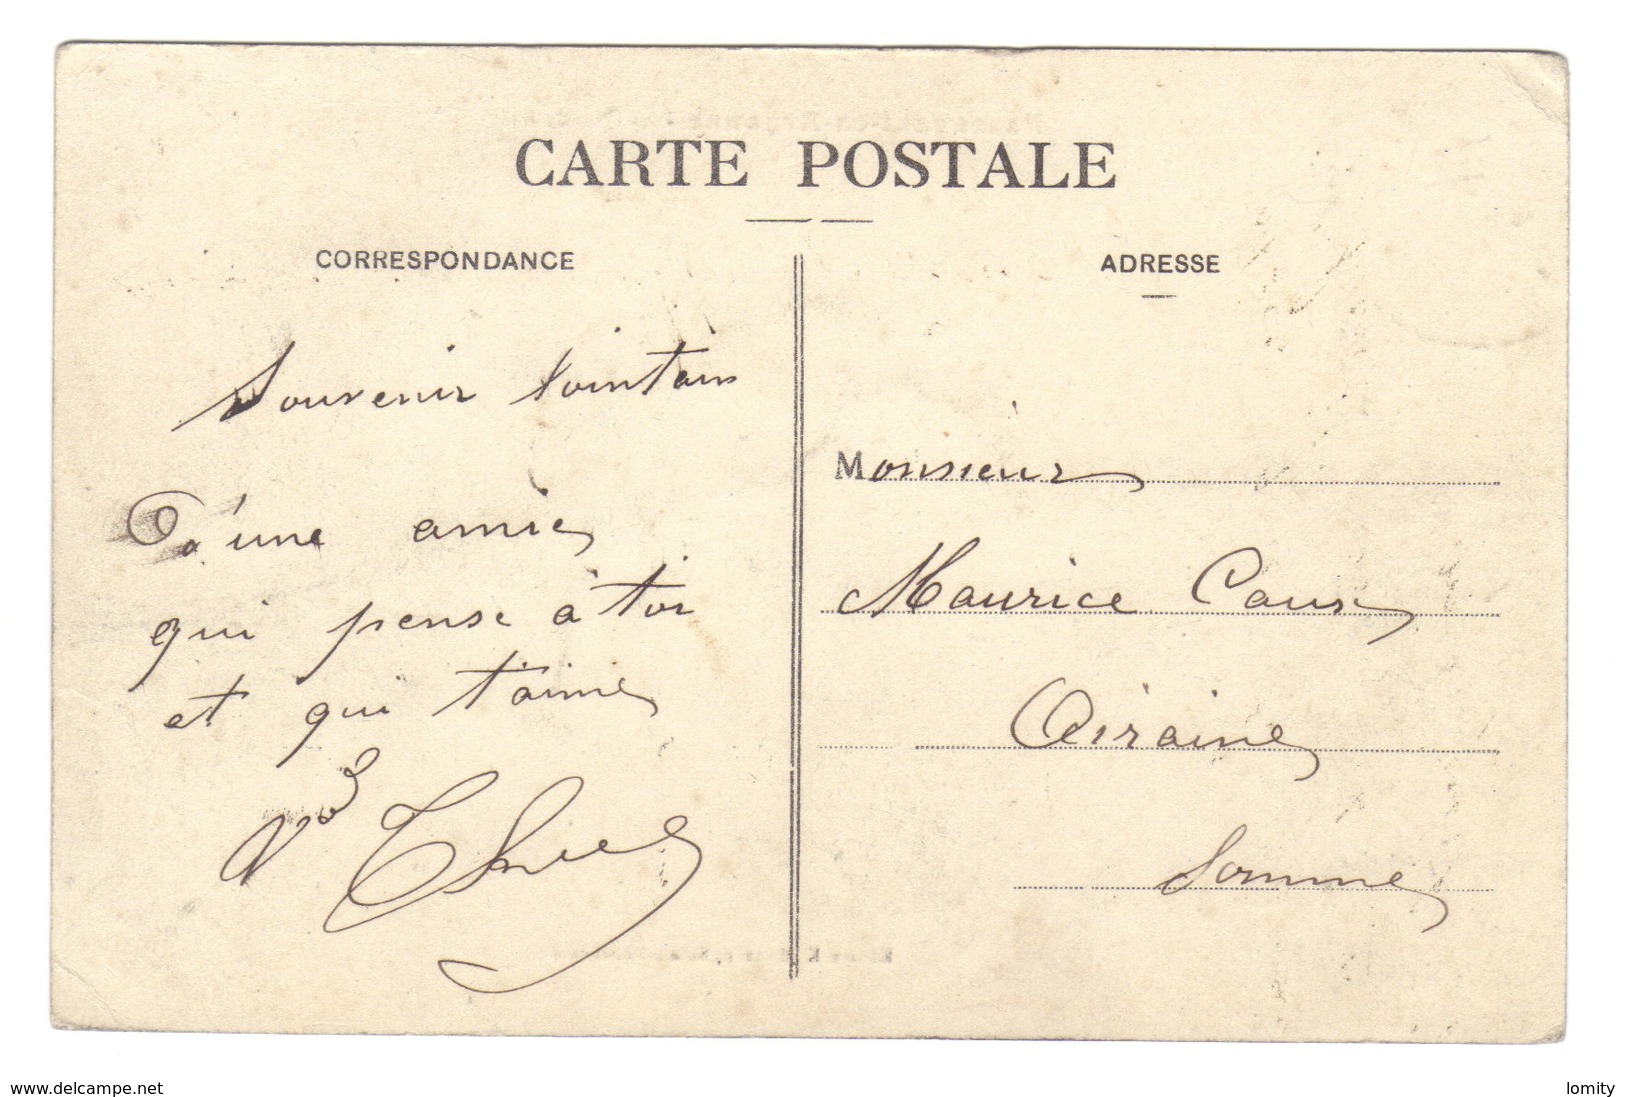 CARTE POSTALE
CORRESPONDANCE
Souvenir lointain
D'une amie
qui pense à toi
et qui t'aime
ADRESSE
Monsieur
Maurice Caux
Airaine
Somme
www.delcampe.net
lomity